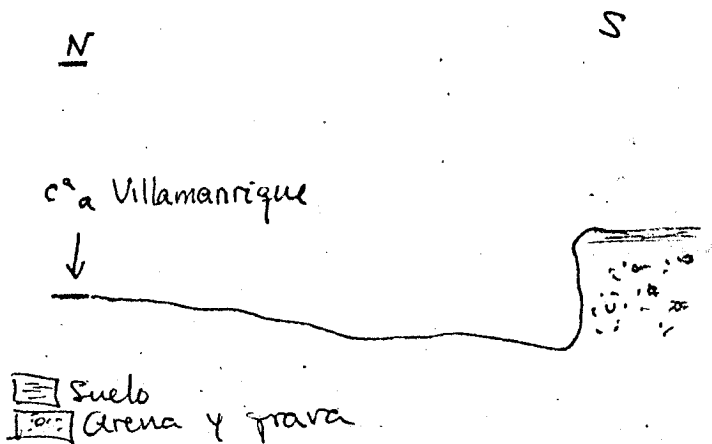 N S
cª a Villamanrique
Suelo
arena y grava